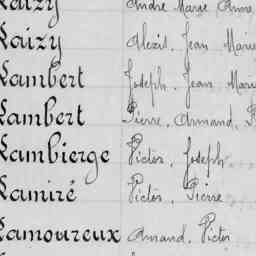 Laizy André Marie Anne
Laizy Alexis. Jean Marie
Lambert Joseph. Jean Marie
Lambert Pierre. Armand.
Lambierge Victor. Joseph
Lamiré Victor. Pierre
Lamoureux Armand. Victor